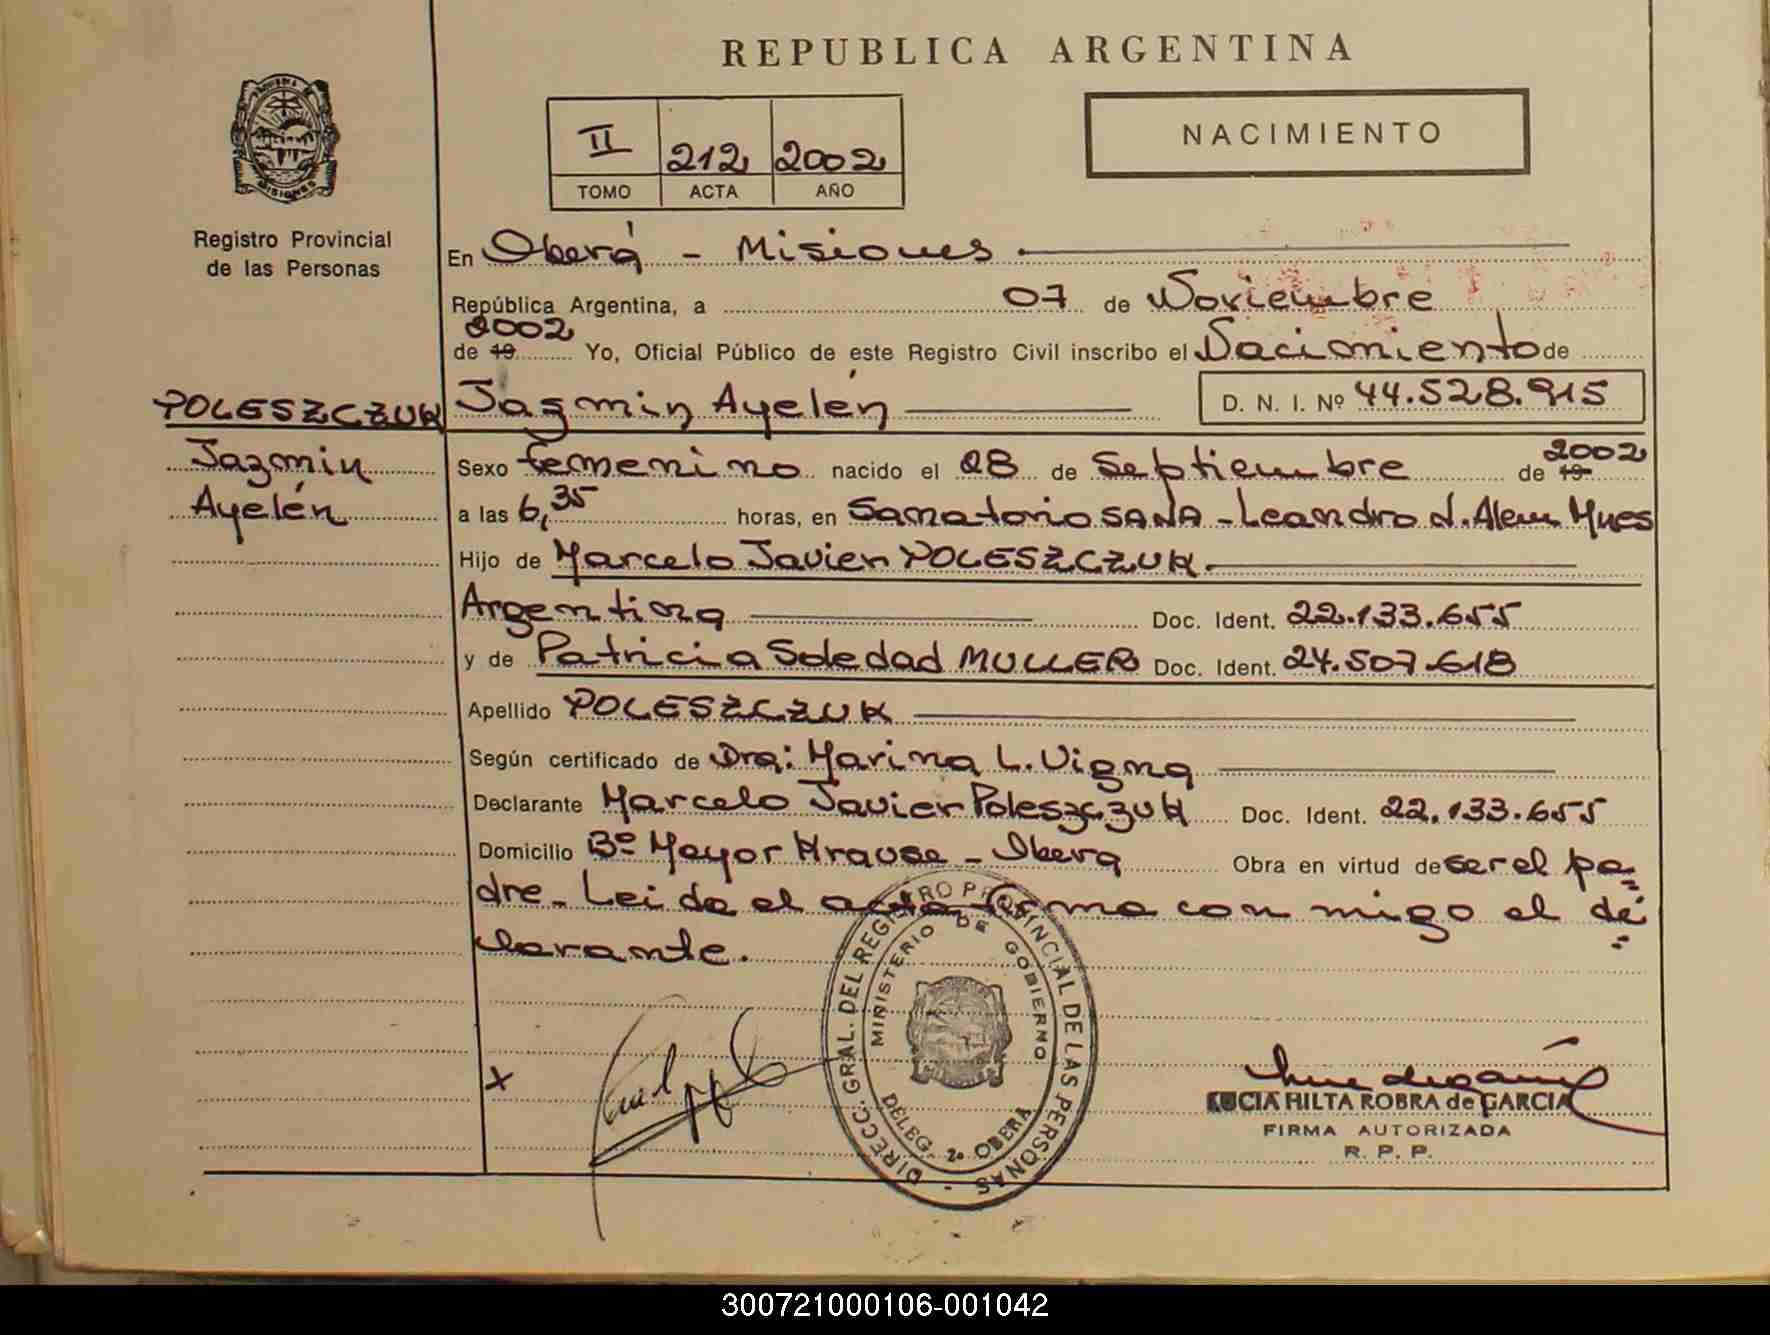 REPUBLICA ARGENTINA
II 212 2002
TOMO ACTA AÑO
NACIMIENTO
MISIONES
Registro Provincial
de las Personas
En Oberá - Misiones
República Argentina, a 07 de Noviembre
2002
de 19 Yo, Oficial Público de este Registro Civil inscribo el Nacimiento de
POLESZCZUK
Jazmin
Ayelén
Jazmin Ayelén D. N. I. Nº 44.528.915
Sexo femenino nacido el 28 de Septiembre de 19 2002
a las 6,35 horas, en Sanatorio SANA - Leandro N. Alem Mnes
Hijo de Marcelo Javier POLESZCZUK.
Argentina Doc. Ident. 22.133.655
y de Patricia Soledad MULLER Doc. Ident. 24.507.618
Apellido POLESZCZUK
Según certificado de Dra: Marina L. Vigna
Declarante Marcelo Javier Poleszczuk Doc. Ident. 22.133.655
Domicilio Bº Mayor Krause - Obera Obra en virtud de ser el pa=
dre - Leida el acta firma con migo el de
=
clarante.
DIRECC. GRAL. DEL REGISTRO PROVINCIAL DE LAS PERSONAS -
MINISTERIO DE GOBIERNO
DELEG. 2a OBERA
X
LUCIA HILTA ROBRA de GARCIA
FIRMA AUTORIZADA
R. P. P.
300721000106-001042